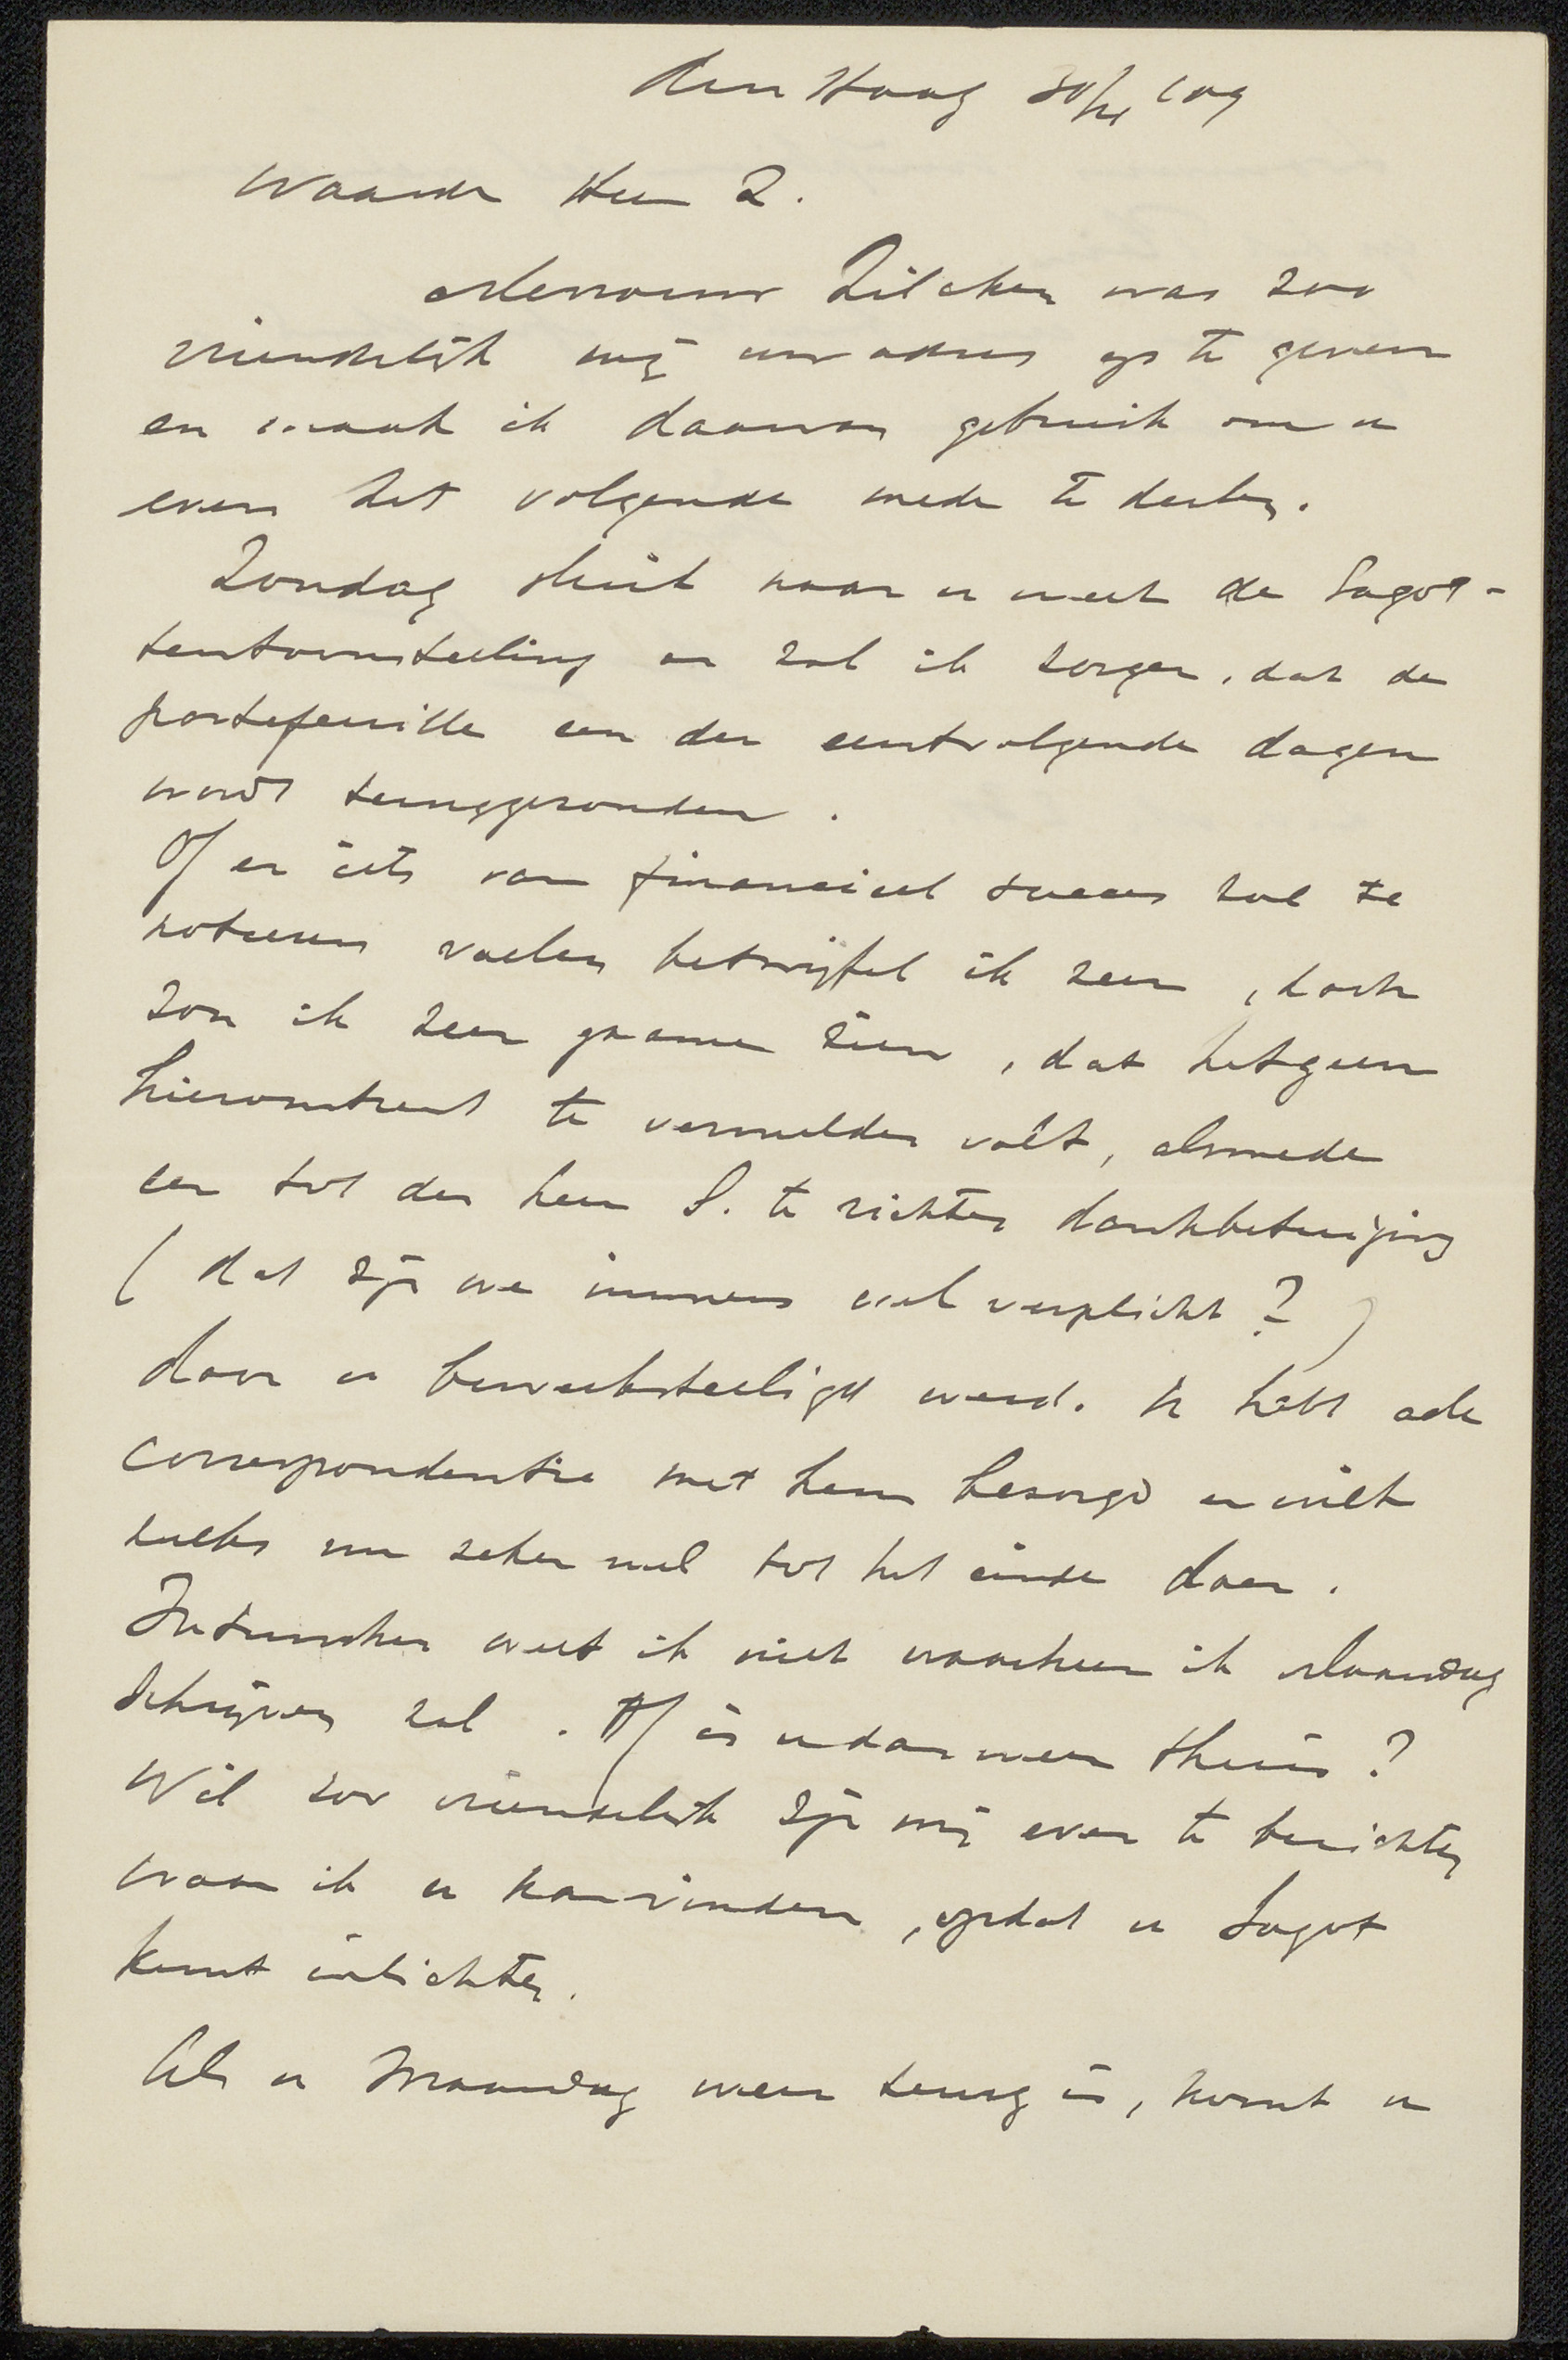 den Haag 30/XI 09
Waarde Heer Z.
Mevrouw Zilcken was zoo
vriendelijk mij uw adres op te geven
en maak ik daarvan gebruik om u
even het volgende mede te deelen.
Zondag sluit naar u weet de Sagot-
tentoonstelling en zal ik zorgen, dat de
portefeuille een der eerstvolgende dagen
wordt teruggezonden.
Of er iets van financieel succes zal te
noteeren vallen betwijfel ik zeer, doch
zou ik zeer gaarne zien, dat hetgeen
hieromtrent te vermelden valt, alsmede
een tot den heer S. te richten dankbetuiging
(dat zijn we immers wel verplicht?)
door u bewerkstelligd werd. U hebt ook
correspondentie met hem bezorgd en wilt
zulks nu zeker wel tot het einde doen.
Intusschen weet ik niet waarheen ik Maandag
schrijven zal. Of is u dan weer thuis?
Wil zoo vriendelijk zijn mij even te berichten
waar ik u kan vinden, opdat u Sagot
kunt inlichten.
Als u Maandag weer terug is, komt u